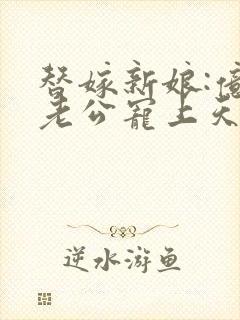 替嫁新娘:億
老公寵上天
逆水游鱼